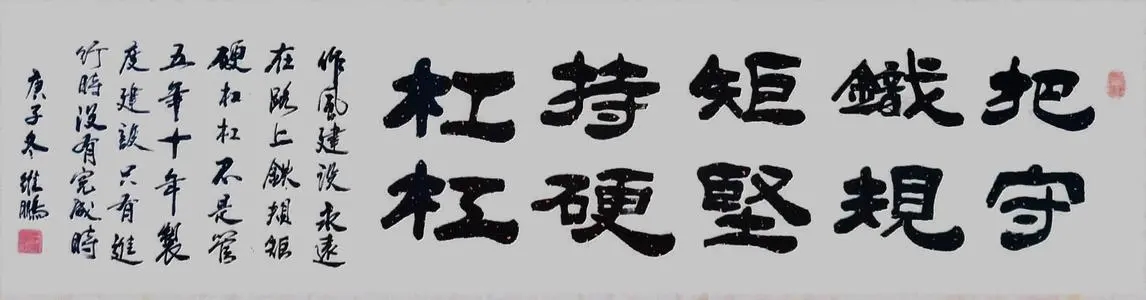 把守
鐵規
矩堅
持硬
杠杠
作風建设永遠
在路上鉄規矩
硬杠杠不是管
五年十年製
度建設只有進
行時没有完成時
庚子冬維鵬